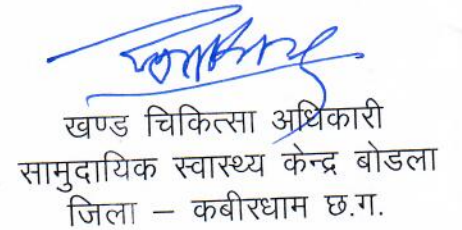 खण्ड चिकित्सा अधिकारी
सामुदायिक स्वास्थ्य केन्द्र बोडला
जिला – कबीरधाम छ.ग.